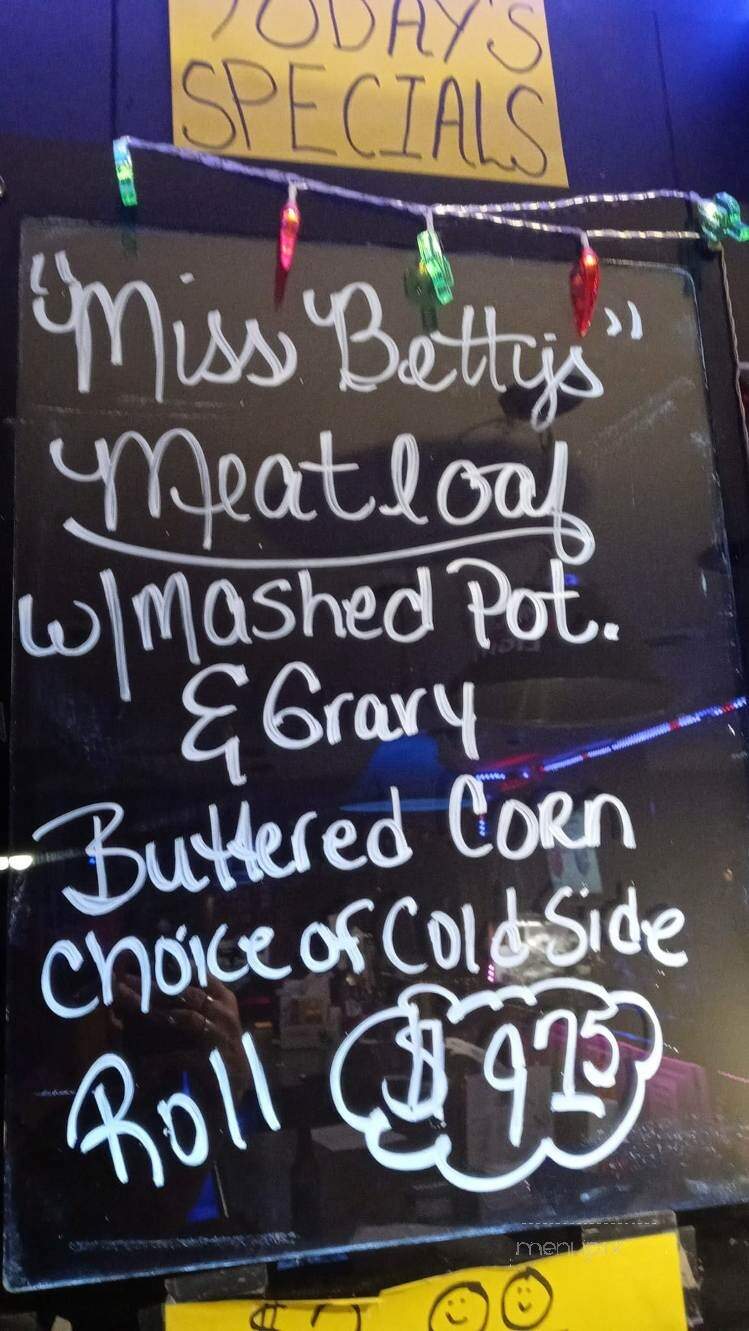 TODAY'S
SPECIALS
"Miss Bettys"
Meatloaf
w/Mashed Pot.
& Gravy
Buttered Corn
Choice of Cold Side
Roll $9.75
menupix
$7